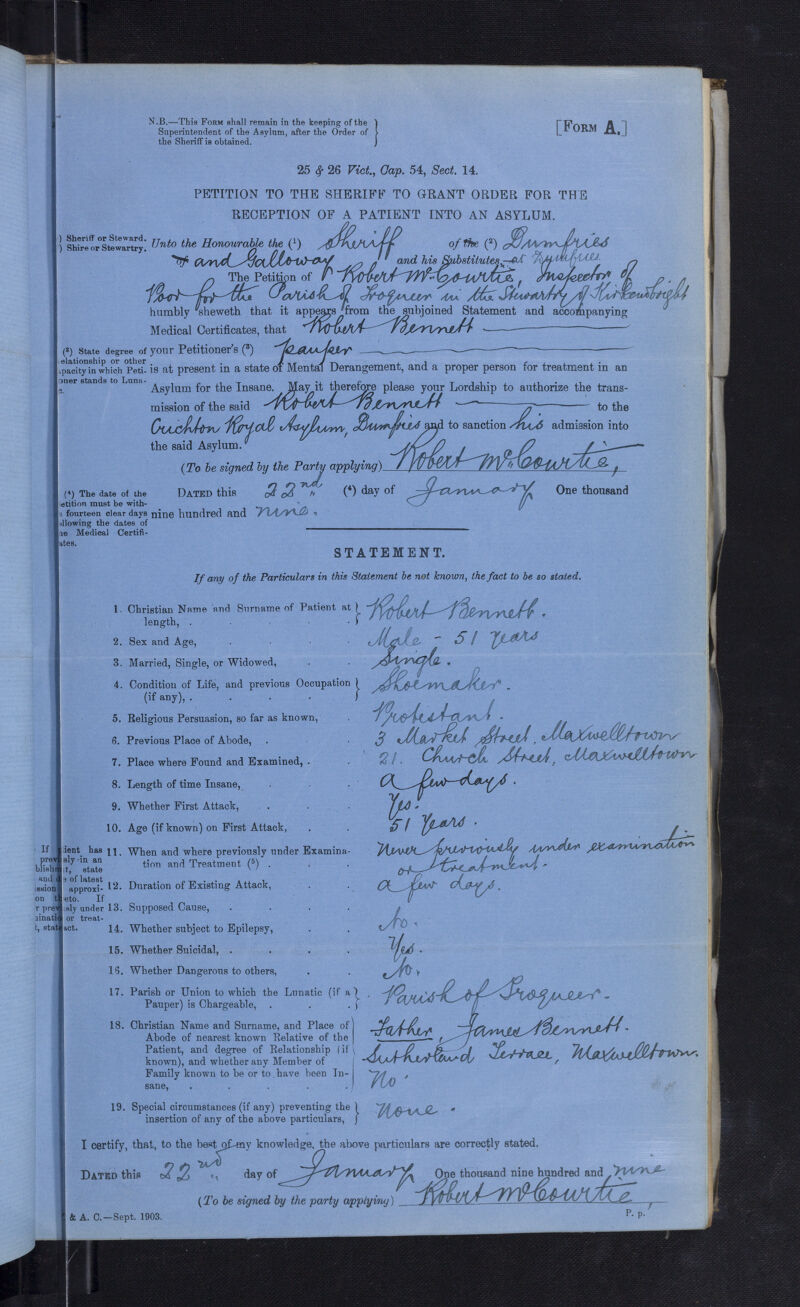 N.B.—This Form shall remain in the keeping of the
Superintendent of the Asylum, after the Order of
the Sheriff is obtained.
[Form A.]
25 & 26 Vict., Cap. 54, Sect. 14.
PETITION TO THE SHERIFF TO GRANT ORDER FOR THE
RECEPTION OF A PATIENT INTO AN ASYLUM.
) Sheriff or Steward.
) Shire or Stewartry.
Unto the Honourable the (¹) Sheriff of the (²) Dumfries
and Galloway and his Substitutes, at Dumfries
The Petition of Robert McCourtie, Inspector of
Poor for the Parish of Troqueer in the Stewartry of Kirkcudbright
humbly sheweth that it appears from the subjoined Statement and accompanying
Medical Certificates, that Robert Bennett
(³) State degree of
elationship or other
apacity in which Peti-
oner stands to Luna-
your Petitioner's (³) pauper
is at present in a state of Mental Derangement, and a proper person for treatment in an
Asylum for the Insane. May it therefore please your Lordship to authorize the trans-
mission of the said Robert Bennett to the
Crichton Royal Asylum, Dumfries and to sanction his admission into
the said Asylum.
(To be signed by the Party applying) Robert McCourtie,
(⁴) The date of the
etition must be with-
fourteen clear days
ollowing the dates of
he Medical Certifi-
ates.
Dated this 22nd (⁴) day of January One thousand
nine hundred and nine.
STATEMENT.
If any of the Particulars in this Statement be not known, the fact to be so stated.
1. Christian Name and Surname of Patient at
length, . Robert Bennett.
2. Sex and Age, Male - 51 Years
3. Married, Single, or Widowed, Single.
4. Condition of Life, and previous Occupation
(if any), . Shoemaker.
5. Religious Persuasion, so far as known, Protestant.
6. Previous Place of Abode, . 3 Market Street, Maxwelltown
7. Place where Found and Examined, . 21. Church Street, Maxwelltown
8. Length of time Insane, A few days.
9. Whether First Attack, Yes.
10. Age (if known) on First Attack, 51 Years.
If ient has
prev aly in an
blishm t, state
and d s of latest
ssion approxi-
on t eto. If
r prev sly under
minati or treat-
t, stat act.
11. When and where previously under Examina-
tion and Treatment (⁵) . Never previously under examination
or treatment.
12. Duration of Existing Attack, a few days.
13. Supposed Cause,
14. Whether subject to Epilepsy, No.
15. Whether Suicidal, . Yes.
16. Whether Dangerous to others, No.
17. Parish or Union to which the Lunatic (if a
Pauper) is Chargeable, . Parish of Troqueer.
18. Christian Name and Surname, and Place of
Abode of nearest known Relative of the
Patient, and degree of Relationship (if
known), and whether any Member of
Family known to be or to have been In-
sane,
Father, James Bennett.
Sutherland Terrace, Maxwelltown.
No.
19. Special circumstances (if any) preventing the
insertion of any of the above particulars, None.
I certify, that, to the best of my knowledge, the above particulars are correctly stated.
Dated this 22nd day of January One thousand nine hundred and nine
(To be signed by the party applying) Robert McCourtie,
& A. C.—Sept. 1903.
P. p.